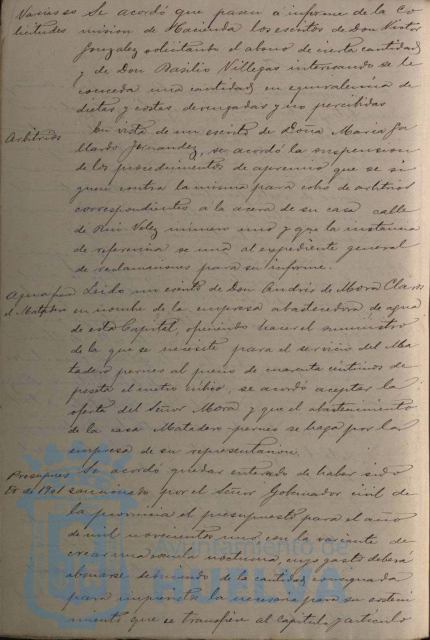 Varias so- Se acordó que pasen a informe de la Co-
licitudes misión de Hacienda los escritos de Don Victor
Gonzalez solicitando el abono de cierta cantidad
y de Don Basilio Villegas interesando se le
conceda una cantidad en equivalencia de
dietas y costas devengadas y no percibidas
Arbitrios En vista de un escrito de Doña Maria Ga-
llardo Fernandez, se acordó la suspension
de los procedimientos de apremio que se si-
guen contra la misma para cobro de arbitrios
correspondientes a la acera de su casa calle
de Rui Velez número uno y que la instancia
de referencia se una al expediente general
de reclamaciones para su informe.
Agua para Leido un escrito de Don Andrés de Mora Claros
el Matadero en nombre de la empresa abastecedora de agua
de esta Capital, ofreciendo hacer el suministro
de la que se necesite para el servicio del Ma-
tadero pernes al precio de cuarenta centimos de
peseta el metro cúbico, se acordó aceptar la
oferta del Señor Mora y que el abastecimiento
de la casa Matadero pernes se haga por la
empresa de su representacion.
Presupues- Se acordó quedar enterado de haber sido
to de 1901 sancionado por el Señor Gobernador civil de
la provincia el presupuesto para el año
de mil novecientos uno, con la variante de
crear una escuela nocturna, cuyo gasto deberá
abonarse de la cantidad consignada
para imprevistos la necesaria para su sosteni-
miento que se transfiere al Capitulo y articulo
Ayuntamiento de
HUELVA